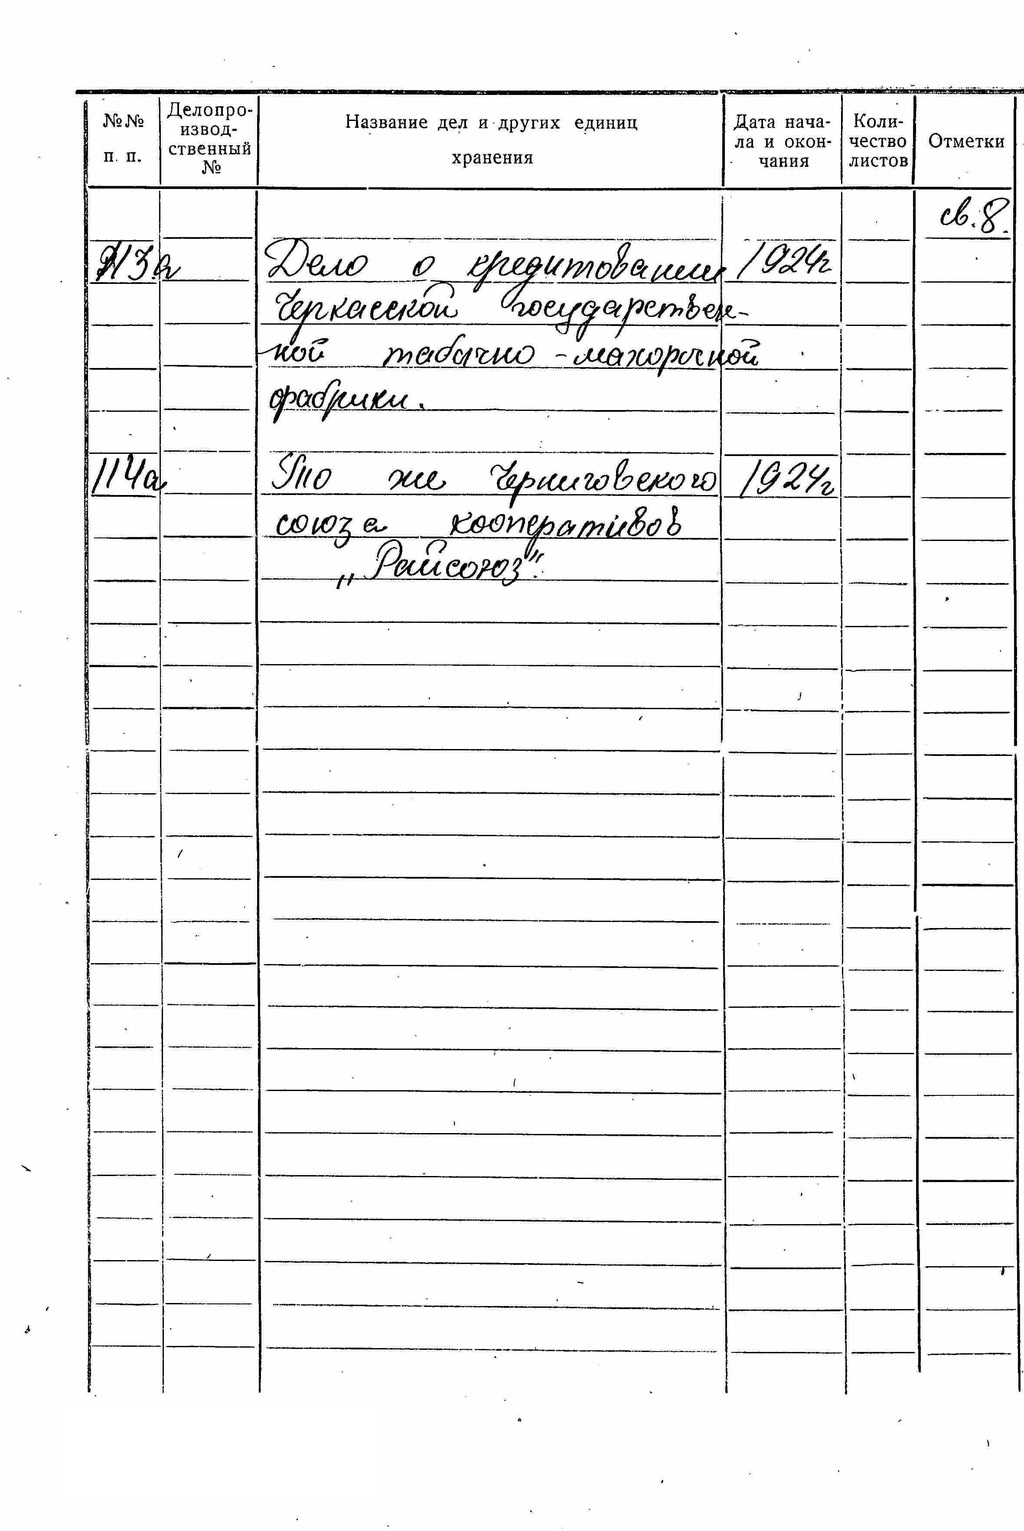 №№ п. п.
Делопро-
извод-
ственный
№
Название дел и других единиц
хранения
Дата нача-
ла и окон-
чания
Коли-
чество
листов
Отметки
св. 8.
113а Дело о кредитовании 1924г
Черкасской государствен-
ной табачно-махорочной
фабрики.
114а То же Черниговского 1924г
союза кооперативов
„Райсоюз".